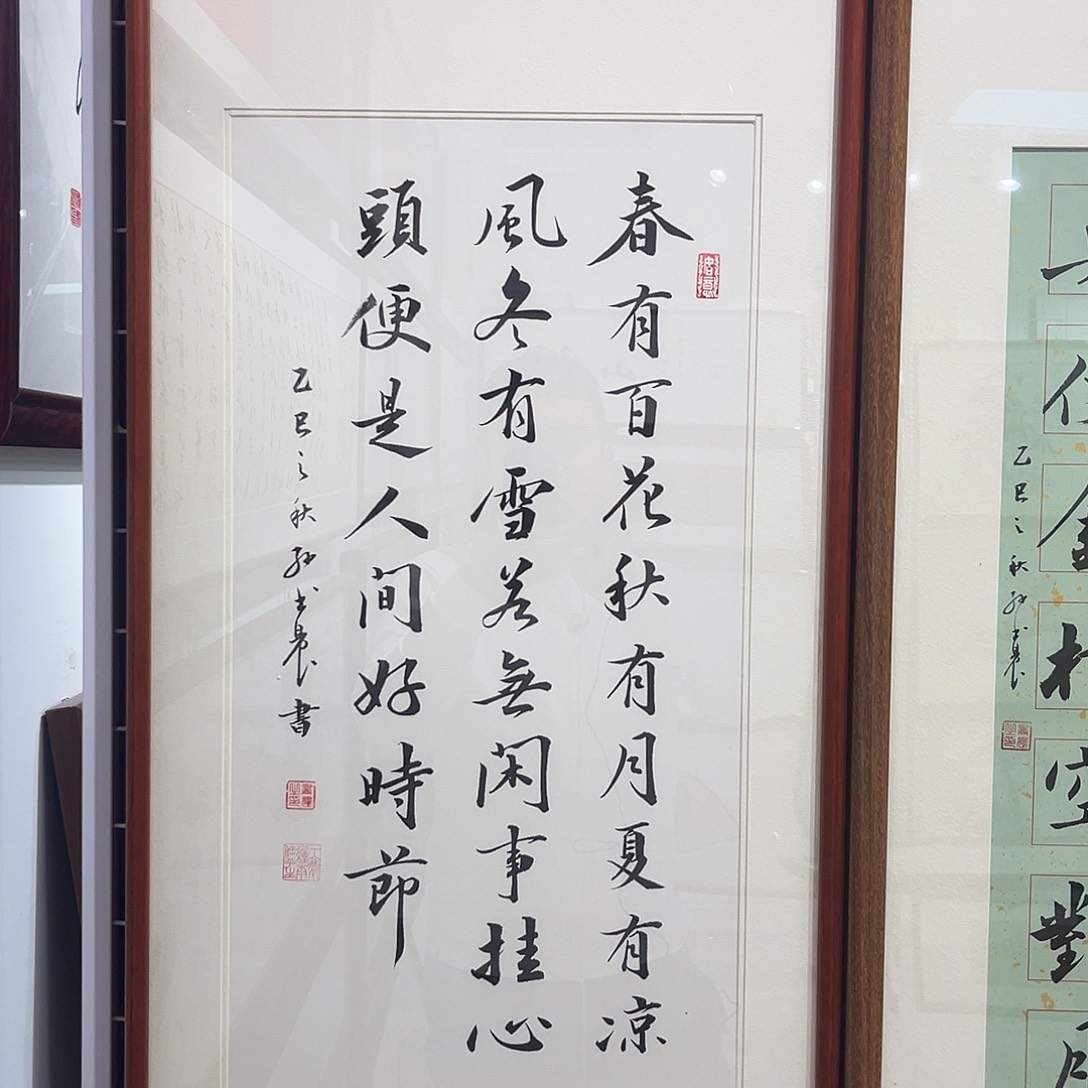 春有百花秋有月夏有凉
風冬有雪若無闲事挂心
頭便是人间好時節
乙巳之秋孙士晨书
空對
乙巳之秋